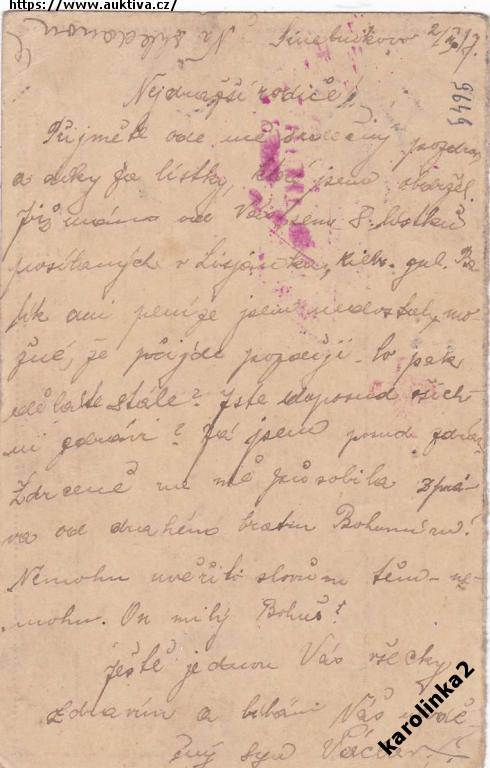 https://www.auktiva.cz/
Na shledanou
Sinelnikovo 2/III 17.
9649
Nejdražší rodiče!
Přijměte ode mě srdečný pozdrav
a díky za lístky, které jsem obdržel.
Již mámo od Vás jsem 8 lístků
posílaných v Lisjanku, Kiev. gub. Ba-
lík ani peníze jsem nedostal, mo-
žné, že přijde později. Co pak
děláte stále? Jste doposud všich-
ni zdrávi? Já jsem posud zdráv.
Zdrceně na mě působila zprá-
va od drahého bratra Bohumíra!
Nemohu uvěřiti slovům těm - ne-
mohu. On milý Bohuš!
Ještě jednou Vás všecky
zdravím a líbám Váš vdě-
čný syn Václav.
karolinka2